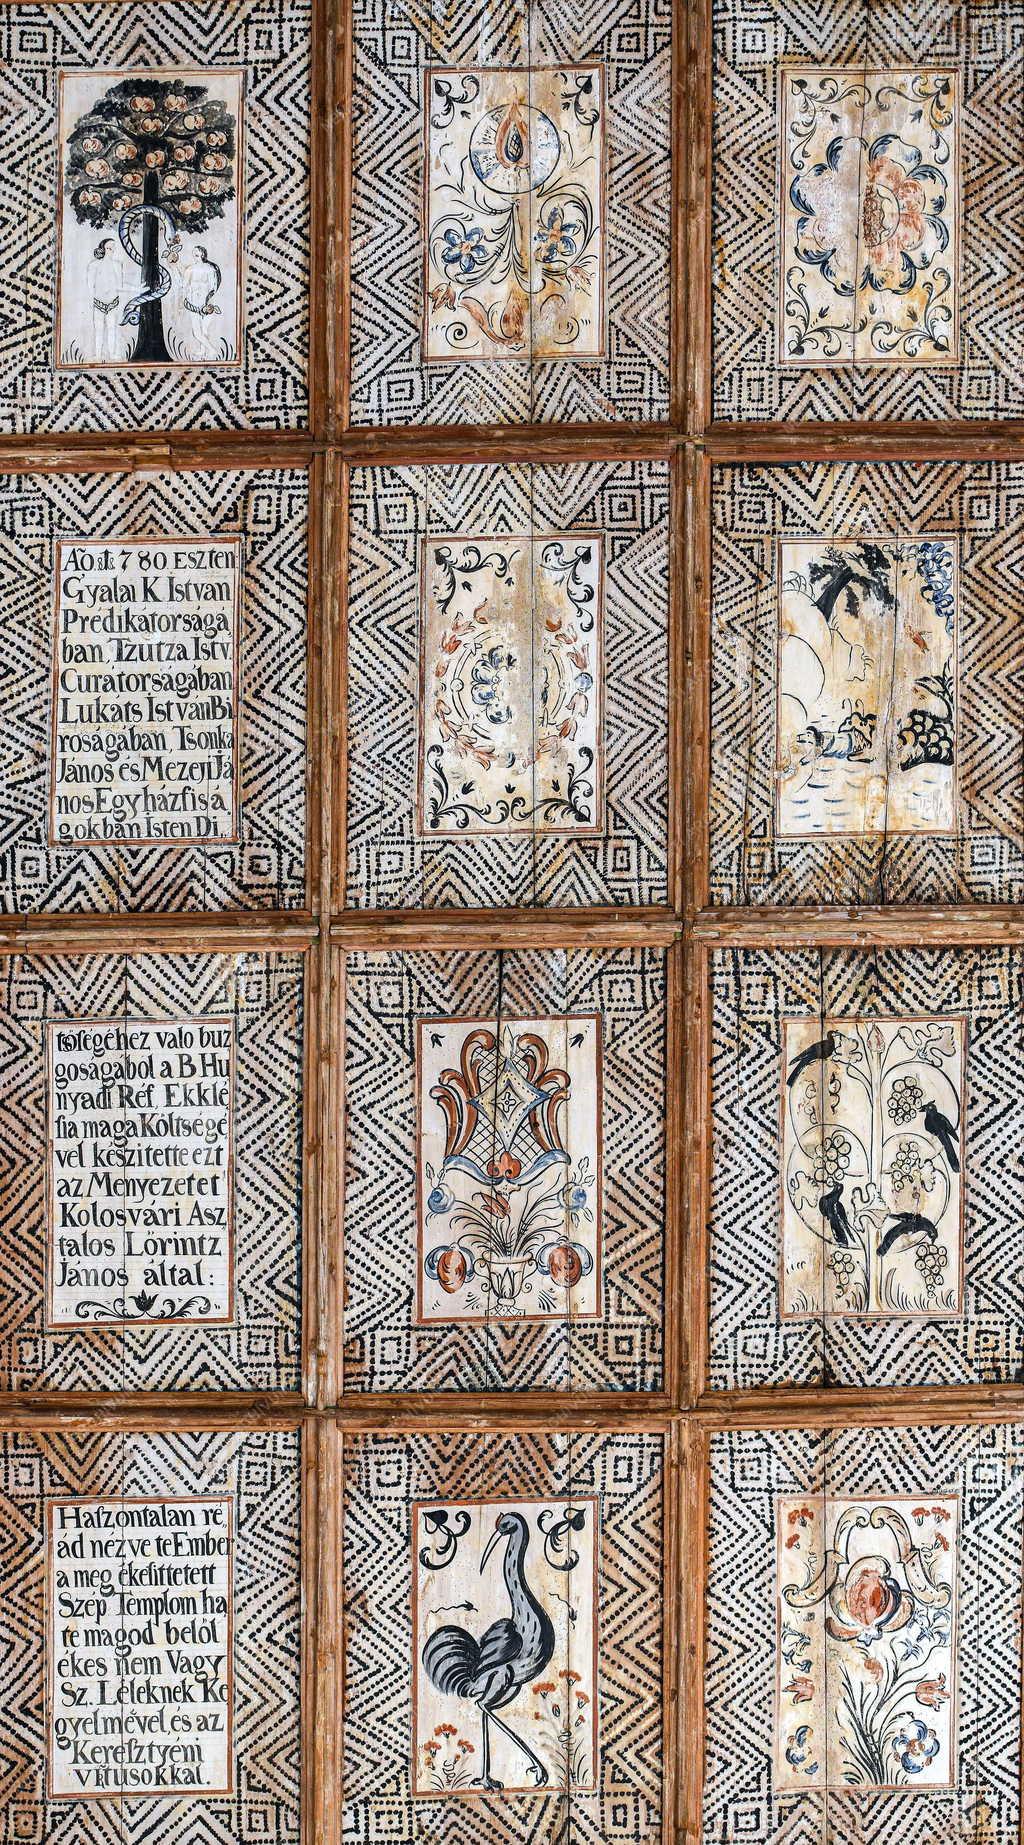 Aõ 1780 ESZTEN
Gyalai K Istvan
Prédikátorságá
ban, Tzutza Istv.
Curatorságában
Lukats IstvanBi
roságában, Tsonka
János és Mezeji Já
nos Egyházfisá
gokban Isten Di„
tsöségéhez valo buz
goságábol a B Hu
nyadi Réf. Ekklé
sia maga Költségé
vel készitette ezt
az Menyezetet
Kolosvari Asz
talos Lőrintz
János által:
Haſzontalan ré„
ád nézve te Ember
a meg ékeſittetett
Szép Templom ha
te magod belöl
ékes nem Vagy
Sz. Léleknek Ke
gyelmével és az
Kereſztyéni
VIRtusokkal.